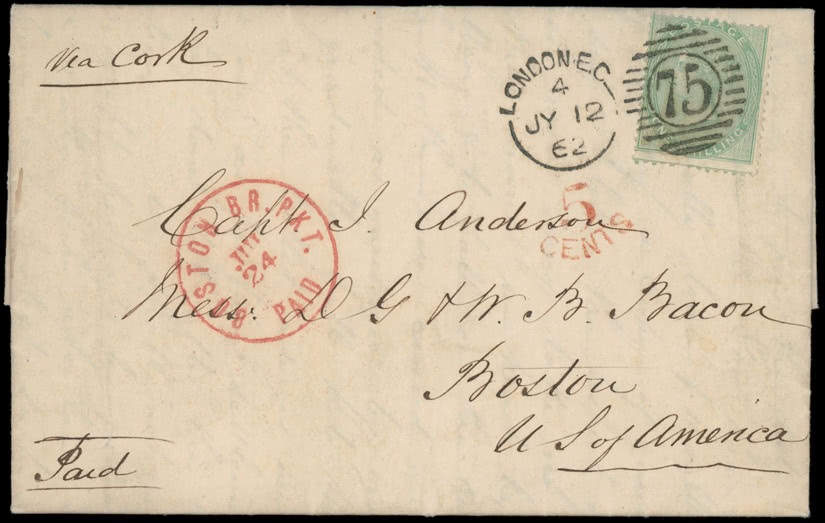 Via Cork
LONDON·E.C
4
JY 12
62
75
POSTAGE
ONE SHILLING
5
CENTS
BOSTON BR. PKT.
24
PAID
Capt. J. Anderson
Mess. D G & W. B. Bacon
Boston
U S of America
Paid